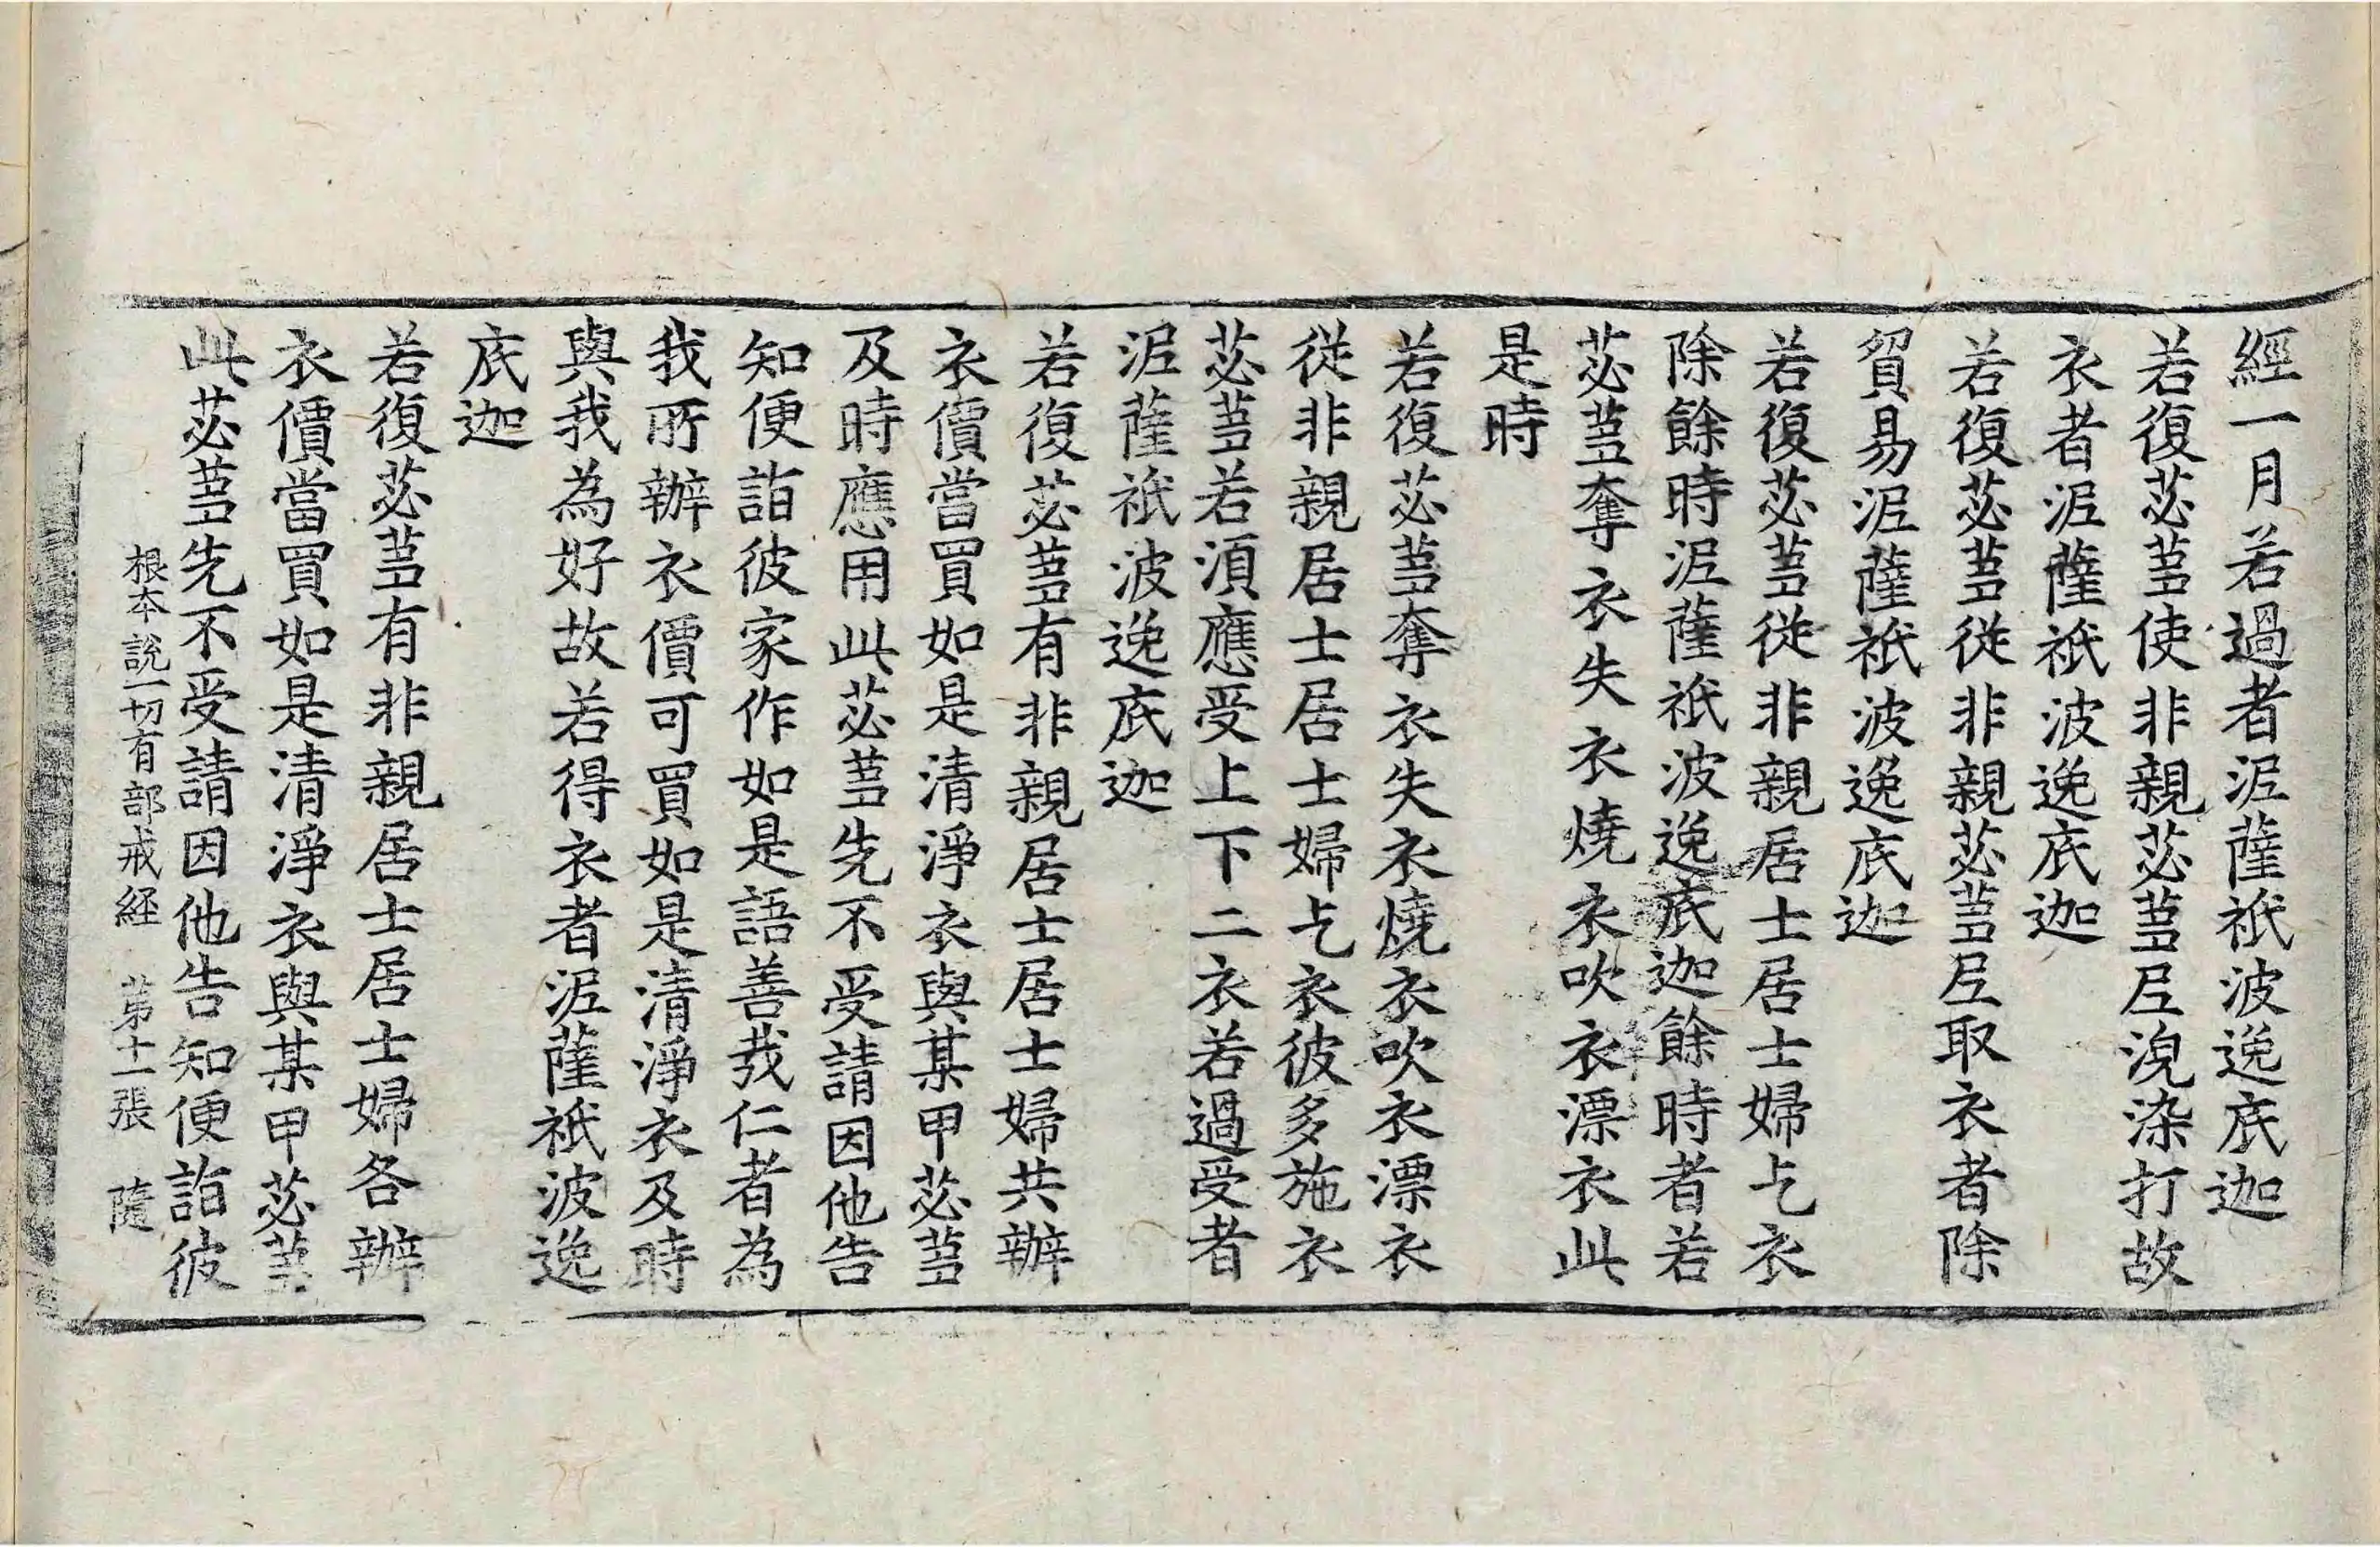 經一月若過者泥薩祇波逸底迦
若復苾芻使非親苾芻尼浣染打故
衣者泥薩祇波逸底迦
若復苾芻從非親苾芻尼取衣者除
貿易泥薩祇波逸底迦
若復苾芻從非親居士居士婦乞衣
除餘時泥薩祇波逸底迦餘時者若
苾芻奪衣失衣燒衣吹衣漂衣此
是時
若復苾芻奪衣失衣燒衣吹衣漂衣
從非親居士居士婦乞衣彼多施衣
苾芻若須應受上下二衣若過受者
泥薩祇波逸底迦
若復苾芻有非親居士居士婦共辦
衣價當買如是清淨衣與某甲苾芻
及時應用此苾芻先不受請因他告
知便詣彼家作如是語善哉仁者為
我所辦衣價可買如是清淨衣及時
與我為好故若得衣者泥薩祇波逸
底迦
若復苾芻有非親居士居士婦各辦
衣價當買如是清淨衣與某甲苾芻
此苾芻先不受請因他告知便詣彼
根本說一切有部戒経 苐十一張 隨